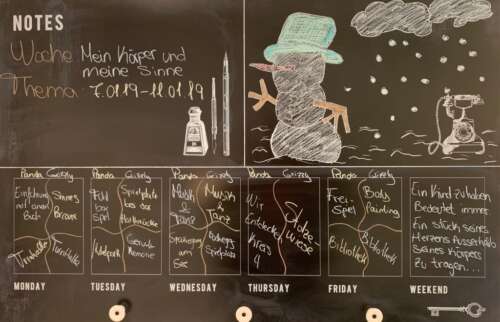 NOTES
Woche: Mein Körper und
meine Sinne
Thema: 7.01.19-11.01.19
Panda Grizzly
Einführung
mit
Buch
Sinnes
Turnhalle
Turnhalle
MONDAY
Panda Grizzly
Fühl
spiel
Spielplatz
bis zur
Waldpark
Geruchs
Memorie
TUESDAY
Panda Grizzly
Musik
&
Tanz
Musik &
Tanz
Spaziergang
am
See
Spielplatz
WEDNESDAY
Panda Grizzly
Wir
Entdecken
Kreis
4
Stube
wiese
THURSDAY
Panda Grizzly
Frei-
Spiel
Body
Painting
Bibliothek
Bibliothek
FRIDAY
Ein Kind zu haben
Bedeutet immer
Ein Stück seines
Herzens Ausserhalb
Seines Körpers
Zu tragen...
WEEKEND